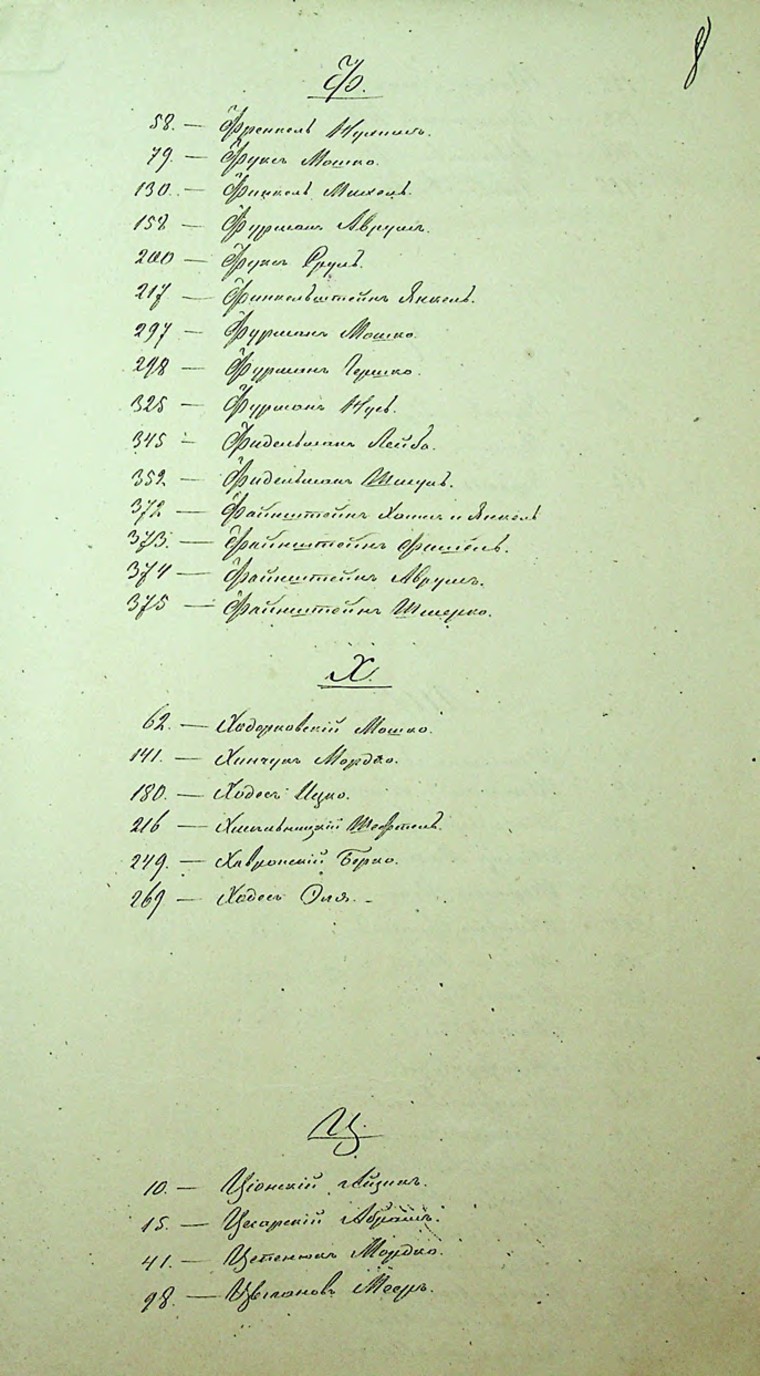 8
Ф.
58. — Френкель Нухимъ.
79. — Фуксъ Мошко.
130. — Финкель Михель.
158 — Фурманъ Аврумъ.
200 — Фуксъ Сруль.
217 — Финкельштейнъ Янкель.
297 — Фурманъ Мошко.
298 — Фурманъ Гершко.
325 — Фурманъ Нусь.
345 — Фидельманъ Лейба.
352 — Фидельманъ Шмуль.
372 — Файнштейнъ и Янкель
373. — Файнштейнъ Фишель.
374 — Файнштейнъ Аврумъ.
375 — Файнштейнъ Шмерко.
Х.
62. — Ходорковскій Мошко.
141. — Хинчукъ Мордко.
180. — Ходосъ Ицко.
216 — Хмельницкій Шефтель.
249. — Хавронскій Берко.
269 — Ходосъ Эля.
Ц.
10. — Ціонскій Айзикъ.
15. — Цесарскій Абрамъ.
41. — Цепенюкъ Мордко.
98. — Цыгановъ Мееръ.